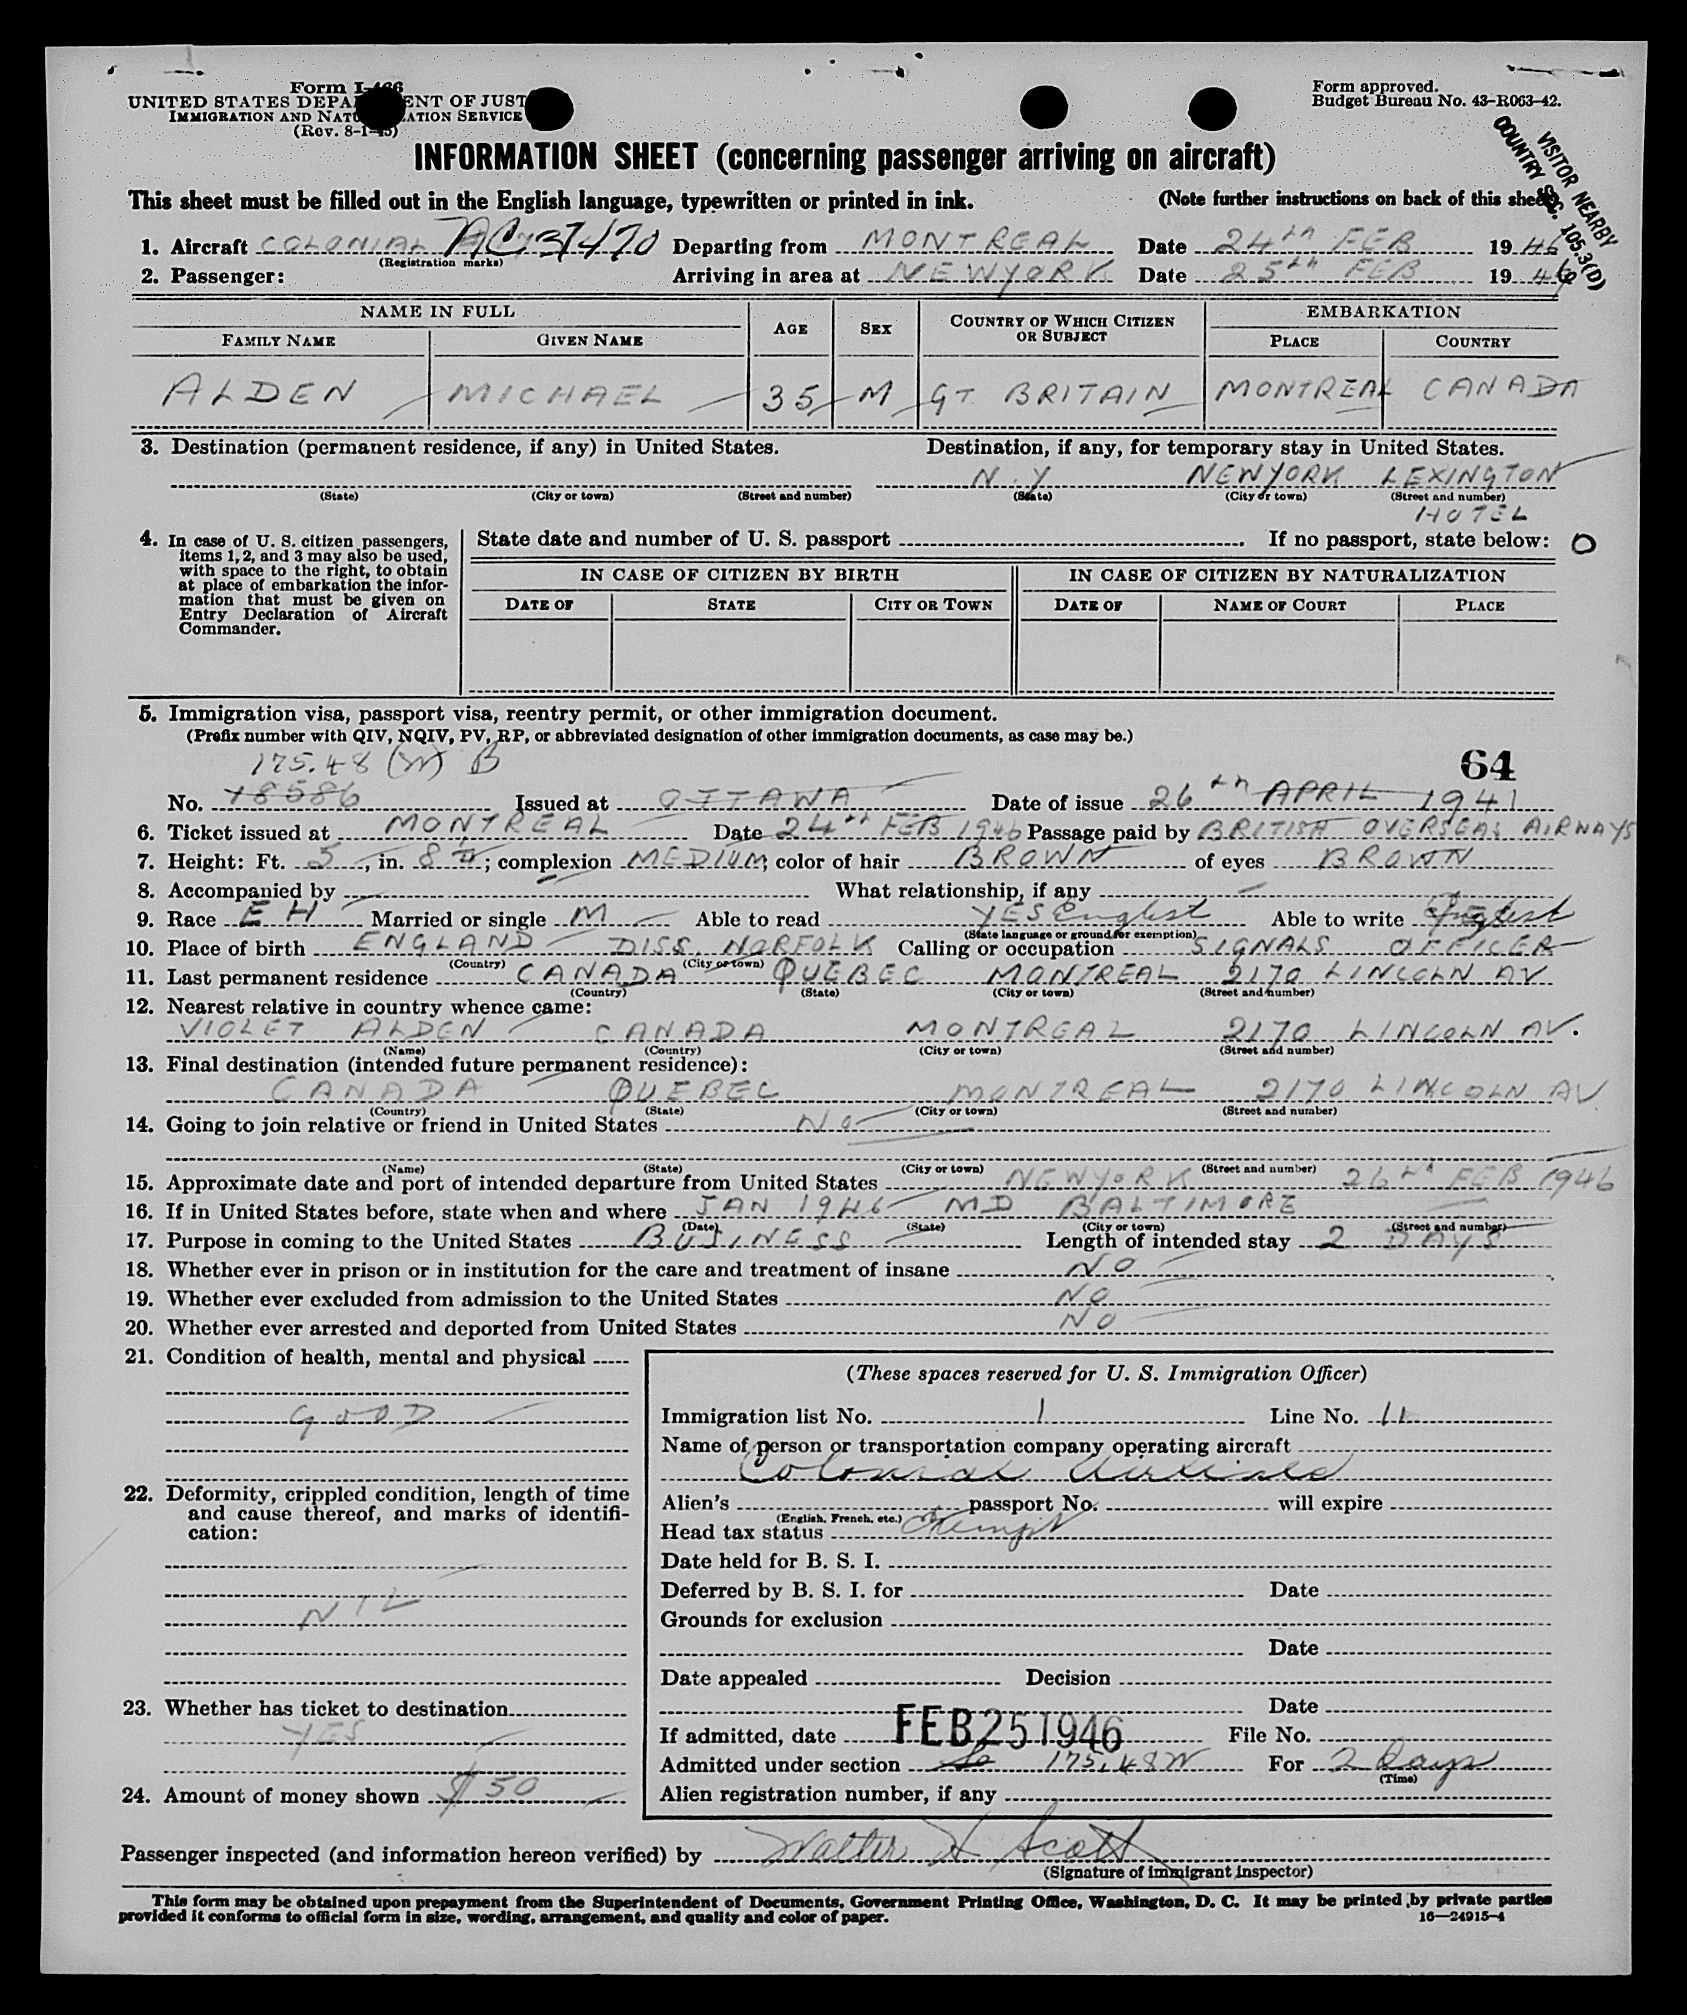 Form I-466
UNITED STATES DEPARTMENT OF JUSTICE
IMMIGRATION AND NATURALIZATION SERVICE
(Rev. 8-1-45)
Form approved.
Budget Bureau No. 43-R063-42.
VISITOR NEARBY
COUNTRY SEC. 105.3(D)
INFORMATION SHEET (concerning passenger arriving on aircraft)
This sheet must be filled out in the English language, typewritten or printed in ink. (Note further instructions on back of this sheet)
1. Aircraft COLONIAL NC 37470 Departing from MONTREAL Date 24th FEB 1946
(Registration marks)
2. Passenger: Arriving in area at NEW YORK Date 25th FEB 1946
NAME IN FULL AGE SEX COUNTRY OF WHICH CITIZEN OR SUBJECT EMBARKATION
FAMILY NAME GIVEN NAME PLACE COUNTRY
ALDEN MICHAEL 35 M GT. BRITAIN MONTREAL CANADA
3. Destination (permanent residence, if any) in United States. Destination, if any, for temporary stay in United States.
N.Y NEW YORK LEXINGTON
(State) (City or town) (Street and number) (State) (City or town) (Street and number)
HOTEL
4. In case of U. S. citizen passengers, items 1, 2, and 3 may also be used, with space to the right, to obtain at place of embarkation the information that must be given on Entry Declaration of Aircraft Commander.
State date and number of U. S. passport . If no passport, state below: O
IN CASE OF CITIZEN BY BIRTH IN CASE OF CITIZEN BY NATURALIZATION
DATE OF STATE CITY OR TOWN DATE OF NAME OF COURT PLACE
5. Immigration visa, passport visa, reentry permit, or other immigration document.
(Prefix number with QIV, NQIV, PV, RP, or abbreviated designation of other immigration documents, as case may be.)
175.48 (W) B
64
No. 18586 Issued at OTTAWA Date of issue 26th APRIL 1941
6. Ticket issued at MONTREAL Date 24th FEB 1946 Passage paid by BRITISH OVERSEAS AIRWAYS
7. Height: Ft. 5, in. 8½; complexion MEDIUM; color of hair BROWN of eyes BROWN
8. Accompanied by — What relationship, if any —
9. Race E H Married or single M Able to read YES English Able to write English
(State language or ground for exemption)
10. Place of birth ENGLAND DISS, NORFOLK Calling or occupation SIGNALS OFFICER
(Country) (City or town)
11. Last permanent residence CANADA QUEBEC MONTREAL 2170 LINCOLN AV
(Country) (State) (City or town) (Street and number)
12. Nearest relative in country whence came:
VIOLET ALDEN CANADA MONTREAL 2170 LINCOLN AV.
(Name) (Country) (City or town) (Street and number)
13. Final destination (intended future permanent residence):
CANADA QUEBEC MONTREAL 2170 LINCOLN AV
(Country) (State) (City or town) (Street and number)
14. Going to join relative or friend in United States NO
(Name) (State) (City or town) (Street and number)
15. Approximate date and port of intended departure from United States NEW YORK 26th FEB 1946
16. If in United States before, state when and where JAN 1946 MD BALTIMORE
(Date) (State) (City or town) (Street and number)
17. Purpose in coming to the United States BUSINESS Length of intended stay 2 DAYS
18. Whether ever in prison or in institution for the care and treatment of insane NO
19. Whether ever excluded from admission to the United States NO
20. Whether ever arrested and deported from United States NO
21. Condition of health, mental and physical
GOOD
22. Deformity, crippled condition, length of time and cause thereof, and marks of identification:
NIL
23. Whether has ticket to destination
YES
24. Amount of money shown $50
(These spaces reserved for U. S. Immigration Officer)
Immigration list No. 1 Line No. 11
Name of person or transportation company operating aircraft
Colonial Airlines
Alien's passport No. will expire
(English, French, etc.)
Head tax status Exempt
Date held for B. S. I.
Deferred by B. S. I. for Date
Grounds for exclusion
Date
Date appealed Decision
Date
If admitted, date FEB 25 1946 File No.
Admitted under section 175.48W For 2 Days
(Time)
Alien registration number, if any
Passenger inspected (and information hereon verified) by Walter H Scott
(Signature of immigrant inspector)
This form may be obtained upon prepayment from the Superintendent of Documents, Government Printing Office, Washington, D. C. It may be printed by private parties
provided it conforms to official form in size, wording, arrangement, and quality and color of paper. 16—24915-4